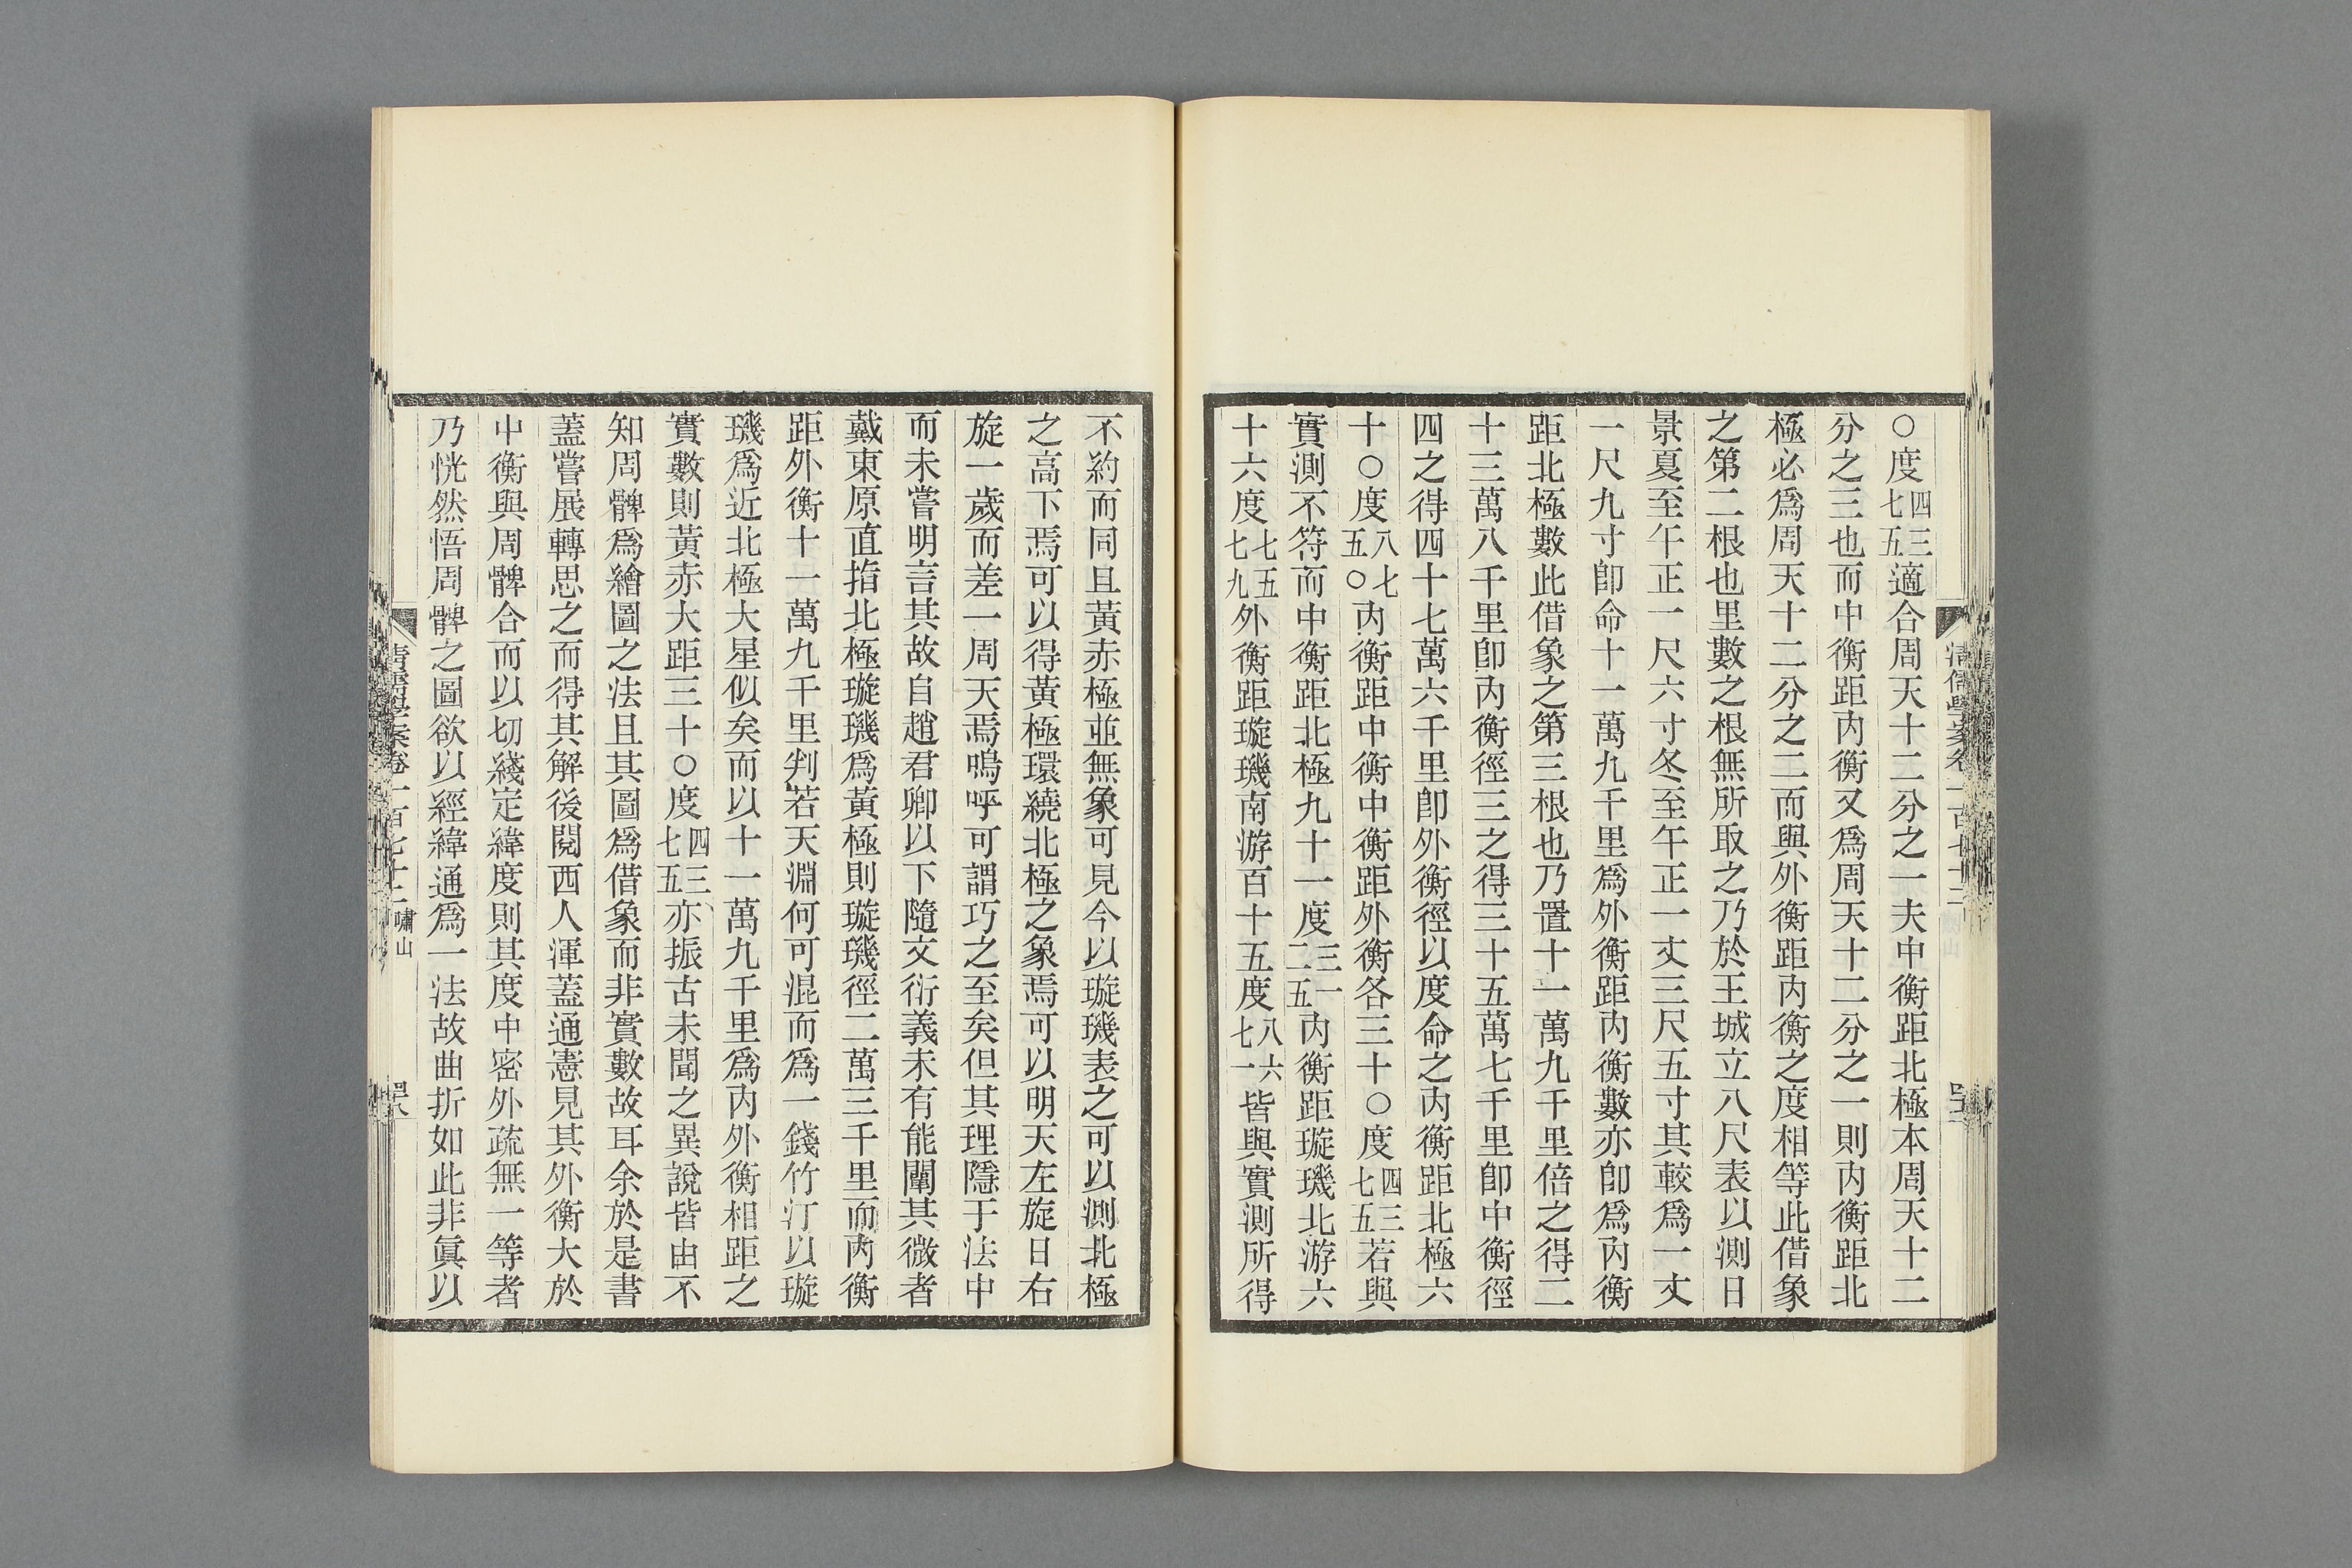 ○度四三七五適合周天十二分之一夫中衡距北極本周天十二
分之三也而中衡距內衡又爲周天十二分之一則內衡距北
極必爲周天十二分之二而與外衡距內衡之度相等此借象
之第二根也里數之根無所取之乃於王城立八尺表以測日
景夏至午正一尺六寸冬至午正一丈三尺五寸其較爲一丈
一尺九寸卽命十一萬九千里爲外衡距內衡數亦卽爲內衡
距北極數此借象之第三根也乃置十一萬九千里倍之得二
十三萬八千里卽內衡徑三之得三十五萬七千里卽中衡徑
四之得四十七萬六千里卽外衡徑以度命之內衡距北極六
十○度八七五○內衡距中衡中衡距外衡各三十○度四三七五若與
實測不符而中衡距北極九十一度三一二五內衡距璇璣北游六
十六度七五七九外衡距璇璣南游百十五度八六七一皆與實測所得
不約而同且黃赤極並無象可見今以璇璣表之可以測北極
之高下焉可以得黃極環繞北極之象焉可以明天左旋日右
旋一歲而差一周天焉嗚呼可謂巧之至矣但其理隱于法中
而未嘗明言其故自趙君卿以下隨文衍義未有能闡其微者
戴東原直指北極璇璣爲黃極則璇璣徑二萬三千里而內衡
距外衡十一萬九千里判若天淵何可混而爲一錢竹汀以璇
璣爲近北極大星似矣而以十一萬九千里爲內外衡相距之
實數則黃赤大距三十○度四三七五亦振古未聞之異說皆由不
知周髀爲繪圖之法且其圖爲借象而非實數故耳余於是書
蓋嘗展轉思之而得其解後閱西人渾蓋通憲見其外衡大於
中衡與周髀合而以切綫定緯度則其度中密外疏無一等者
乃恍然悟周髀之圖欲以經緯通爲一法故曲折如此非眞以
嘯山